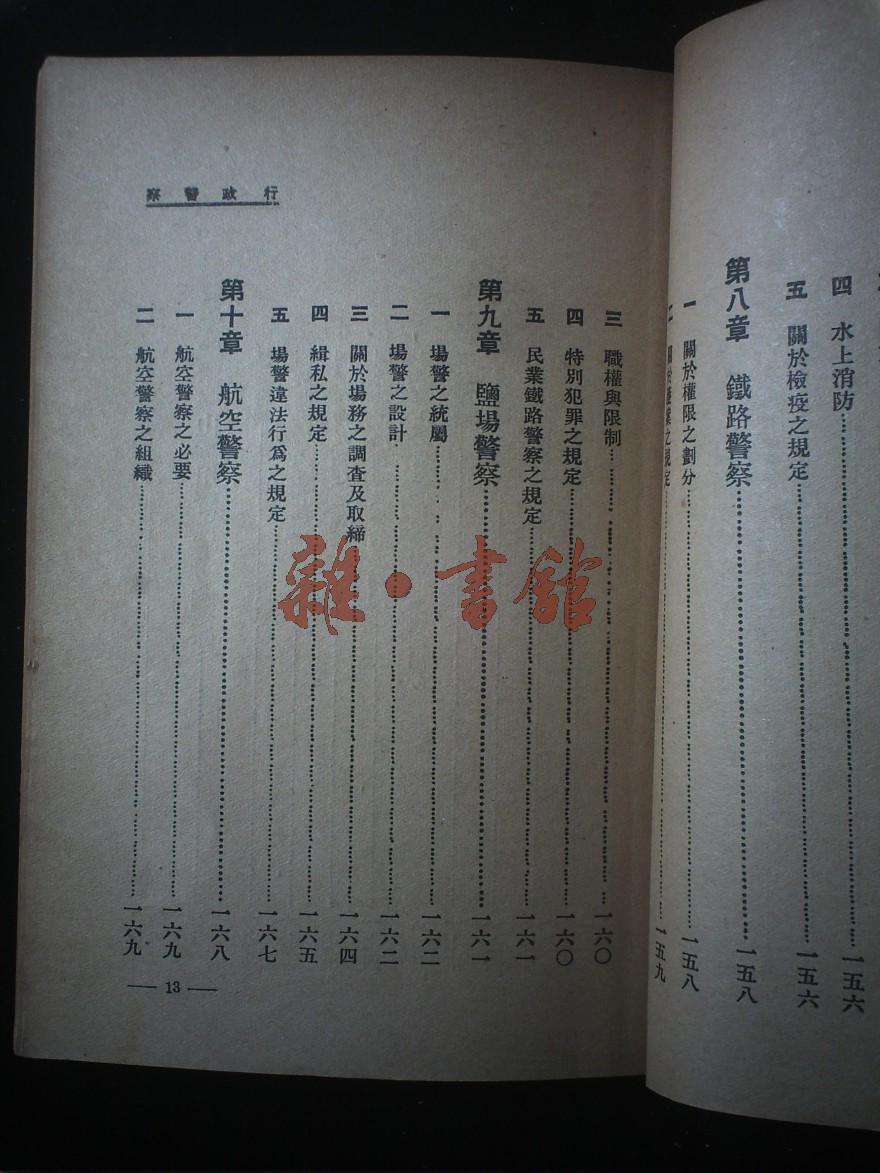 四　水上消防……一五六
五　關於檢疫之規定……一五六
第八章　鐵路警察……一五八
一　關於權限之劃分……一五八
二　關於　　之規定……一五九
行政警察
三　職權與限制……一六〇
四　特別犯罪之規定……一六〇
五　民業鐵路警察之規定……一六一
第九章　鹽場警察……一六一
一　場警之統屬……一六二
二　場警之設計……一六二
三　關於場務之調查及取締……一六四
四　緝私之規定……一六五
五　場警違法行爲之規定……一六七
第十章　航空警察……一六八
一　航空警察之必要……一六九
二　航空警察之組織……一六九
— 13 —
雜·書館